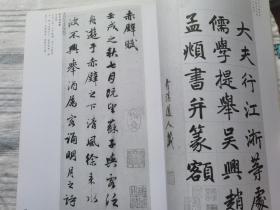 大夫行江浙等處
儒學提舉吳興趙
孟頫書并篆額
赤壁賦
壬戌之秋七月既望蘇子與客泛
舟遊于赤壁之下清風徐來水
波不興舉酒屬客誦明月之詩